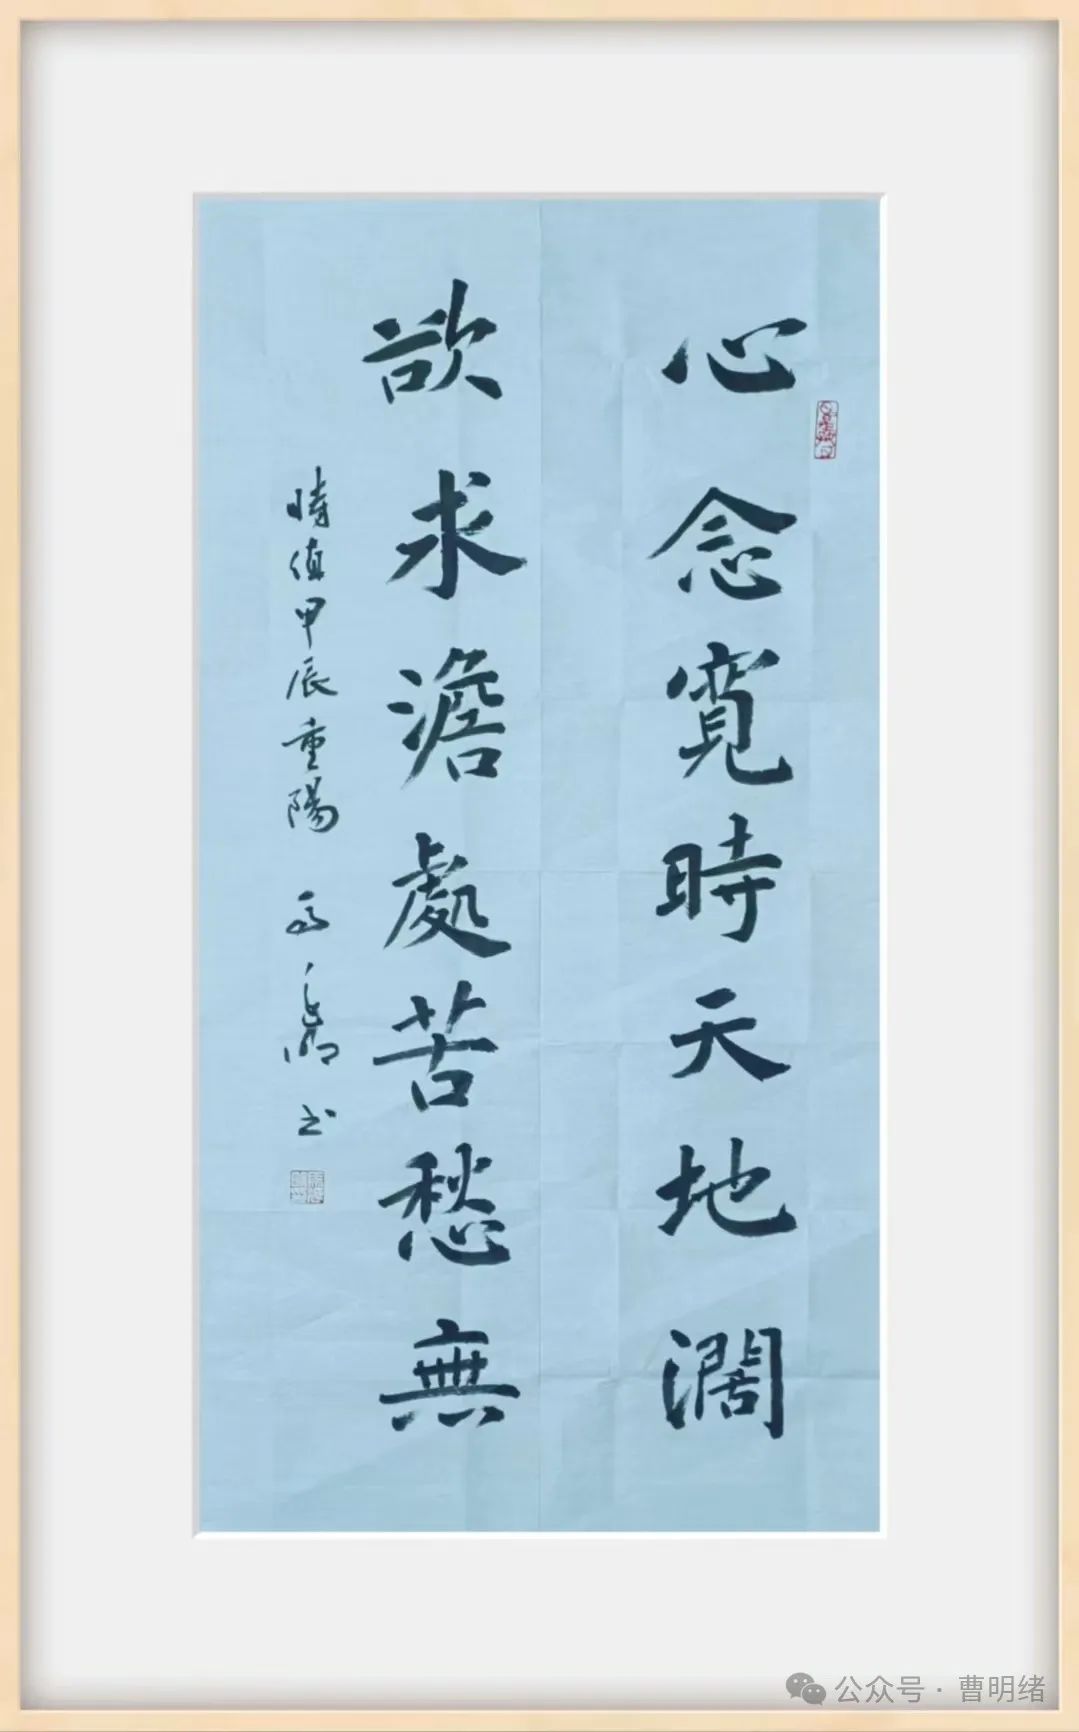 心念寬時天地濶
欲求澹處苦愁無
時值甲辰重陽 書
公众号 · 曹明绪